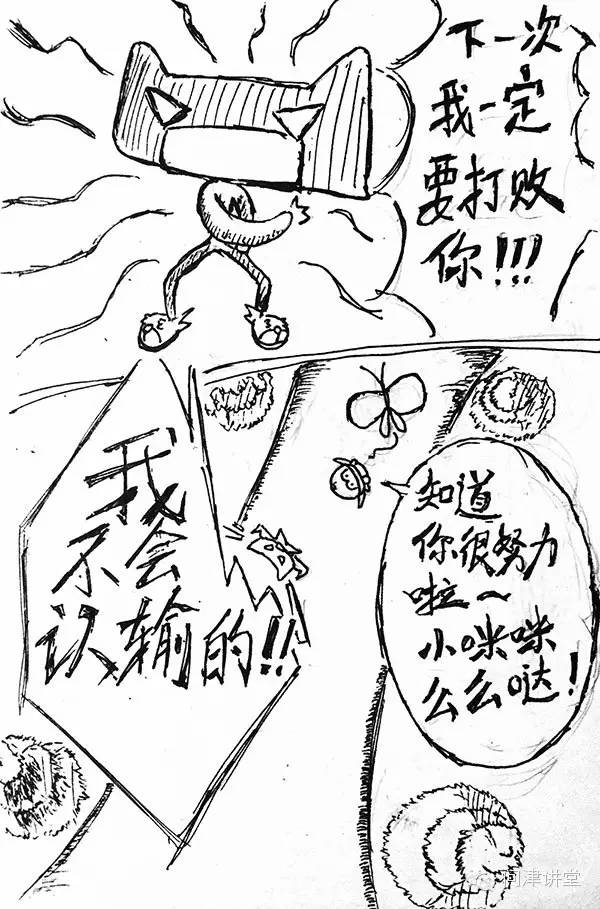 下一次
我一定
要打败
你!!!
我
不会
认输的!!
知道
你很努力
啦～
小咪咪
么么哒!
阿津讲堂